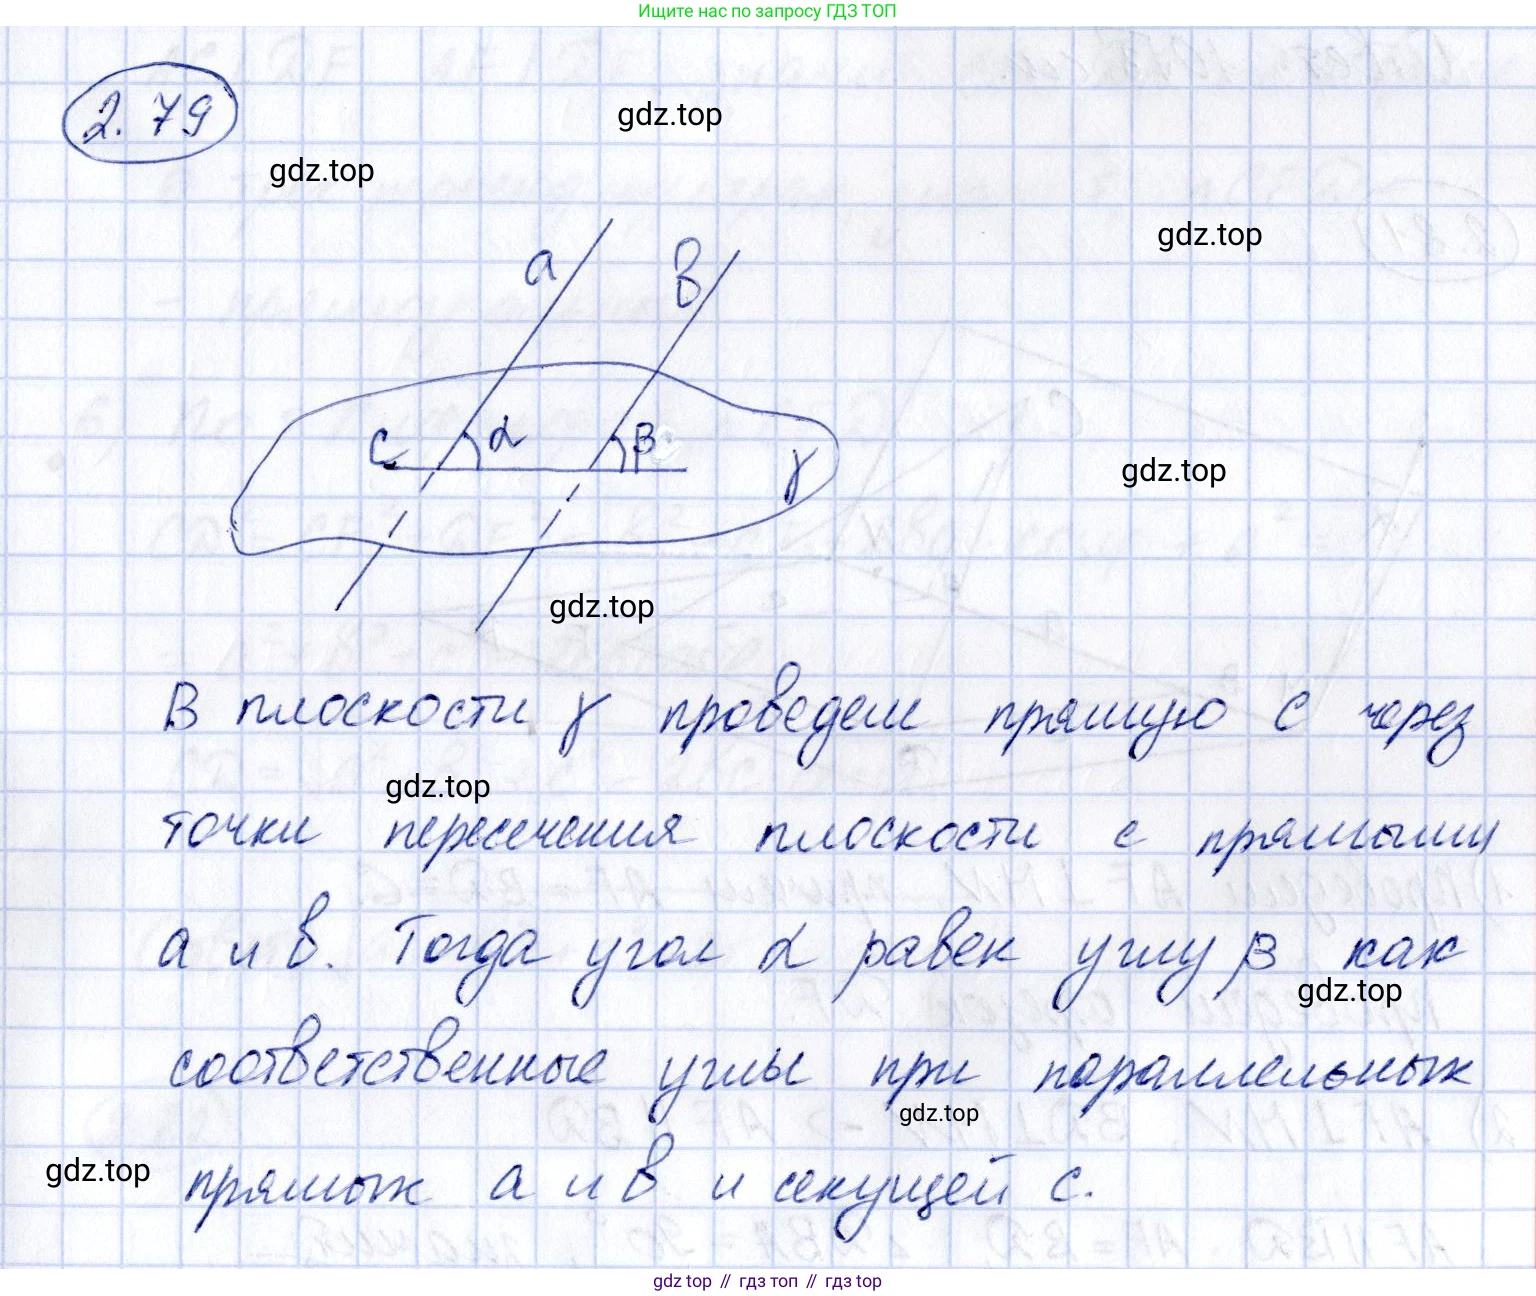 Ищите нас по запросу ГДЗ ТОП
2.79
gdz.top
gdz.top
gdz.top
a
b
c
α
β
γ
gdz.top
gdz.top
В плоскости γ проведем прямую c через
gdz.top
точки пересечения плоскости с прямыми
a и b. Тогда угол α равен углу β как
gdz.top
соответственные углы при параллельных
gdz.top
gdz.top
прямых a и b и секущей c.
gdz top // гдз топ // гдз top